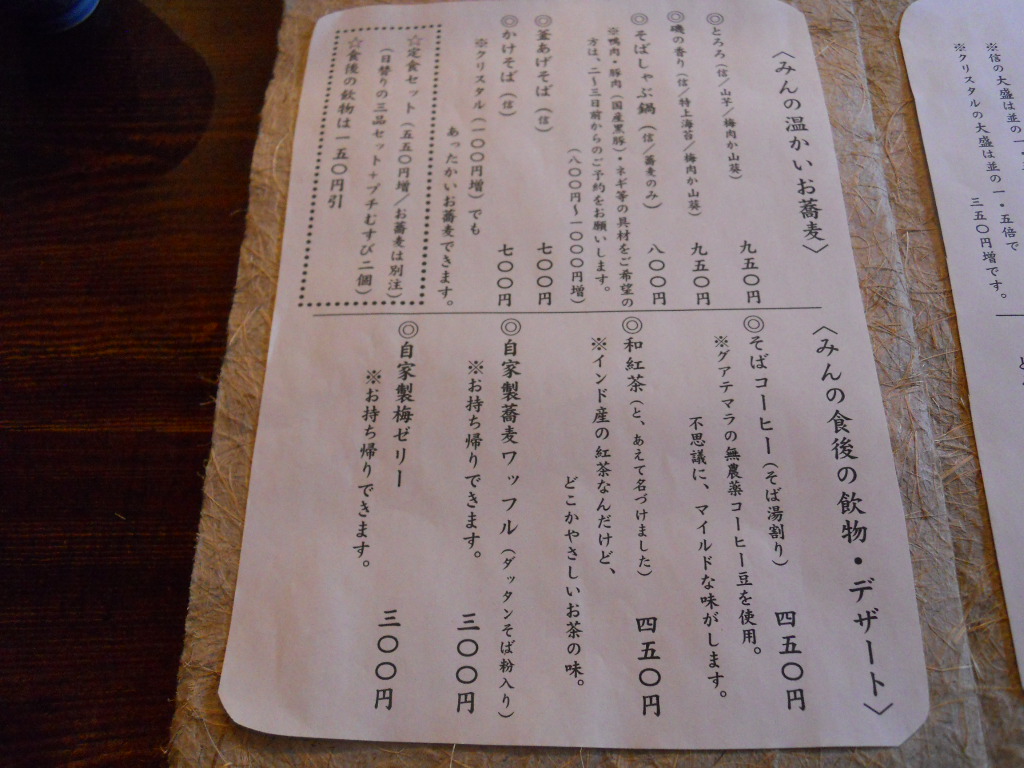 ※信の大盛は並の一・
※クリスタルの大盛は並の一・五倍で
三五〇円増です。
〈みんの温かいお蕎麦〉
◎とろろ（信／山芋／梅肉か山葵） 九五〇円
◎磯の香り（信／特上海苔／梅肉か山葵） 九五〇円
◎そばしゃぶ鍋（信／蕎麦のみ） 八〇〇円
※鴨肉・豚肉（国産黒豚）・ネギ等の具材をご希望の
方は、二～三日前からのご予約をお願いします。
（八〇〇円～一〇〇〇円増）
◎釜あげそば（信） 七〇〇円
◎かけそば（信） 七〇〇円
※クリスタル（一〇〇円増）でも
あったかいお蕎麦できます。
☆定食セット（五五〇円増／お蕎麦は別注）
（日替りの三品セット＋プチむすび二個）
☆食後の飲物は一五〇円引
〈みんの食後の飲物・デザート〉
◎そばコーヒー（そば湯割り） 四五〇円
※グアテマラの無農薬コーヒー豆を使用。
不思議に、マイルドな味がします。
◎和紅茶（と、あえて名づけました） 四五〇円
※インド産の紅茶なんだけど、
どこかやさしいお茶の味。
◎自家製蕎麦ワッフル（ダッタンそば粉入り） 三〇〇円
※お持ち帰りできます。
◎自家製梅ゼリー 三〇〇円
※お持ち帰りできます。